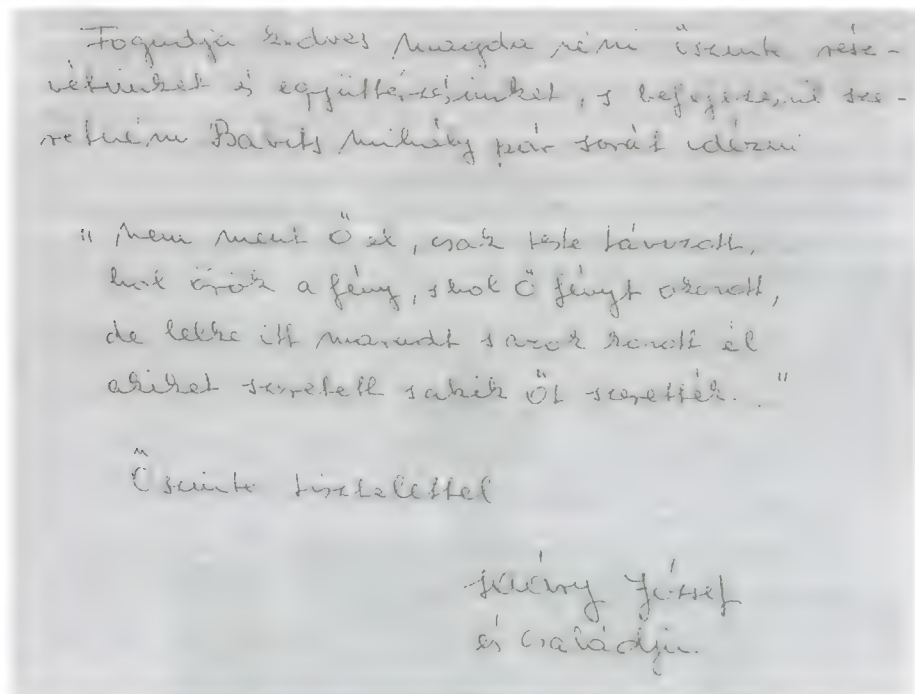 Fogadja kedves Magda néni őszinte rész-
vétünket és együttérzésünket, s befejezésül sze-
retném Babits Mihály pár sorát idézni
"Nem ment Ő el, csak teste távozott,
hol örök a fény, s hol Ő fényt okozott,
de lelke itt maradt s azok között él
akiket szeretett s akik Őt szerették."
Őszinte tisztelettel
József
és családja.